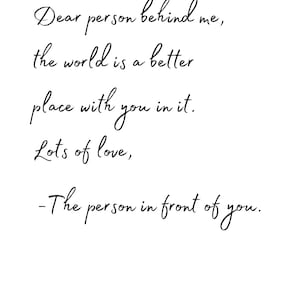 Dear person behind me,
the world is a better
place with you in it.
Lots of love,
-The person in front of you.